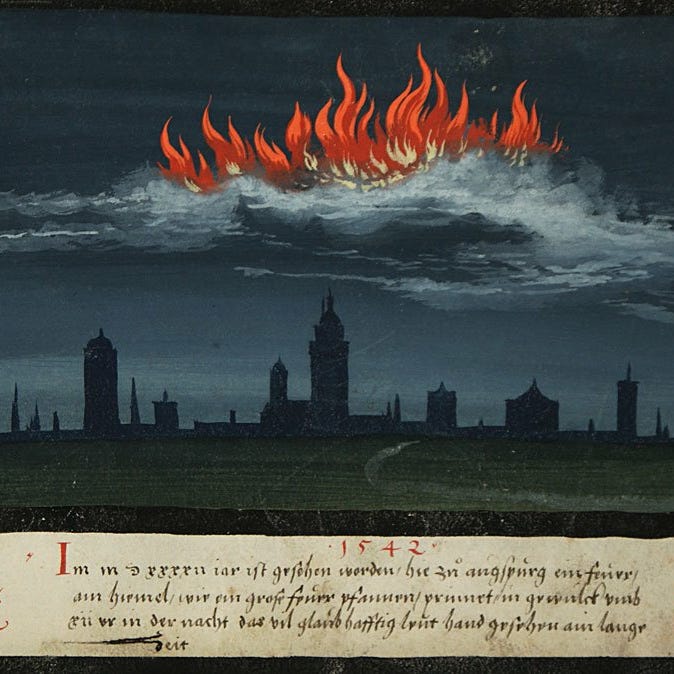 1542
Im m d xxxxii iar ist gesehen worden / hie zů augspurg ein feüer /
am hiemel / wie ein groß feüer pfannen / prunnet / in gewülck umb
xii ur in der nacht das vil glaubhafftig leut hand gesehen am lange
Zeit